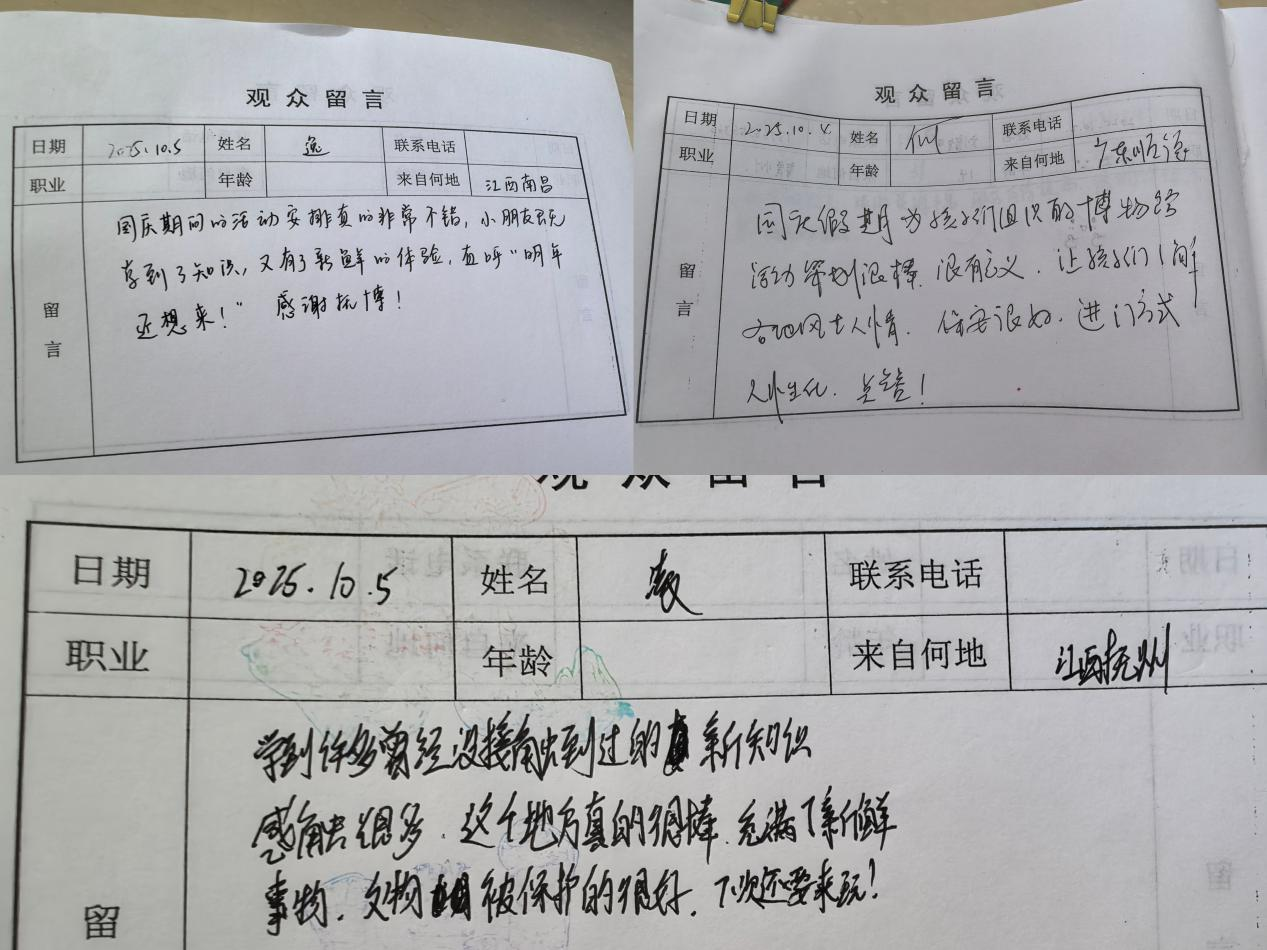 观众留言
日期 2025.10.5 姓名 逸 联系电话
职业 年龄 来自何地 江西南昌
留言
国庆期间的活动安排真的非常不错，小朋友既
学到了知识，又有了新鲜的体验，直呼“明年
还想来！” 感谢抚博！
观众留言
日期 2025.10.4 姓名 何 联系电话
职业 年龄 来自何地 广东顺德
留言
国庆假期为孩子们组织的博物馆
活动策划很棒，很有意义，让孩子们了解
各地风土人情．保安很好．进门方式
人性化．点赞！
观众留言
日期 2025.10.5 姓名 联系电话
职业 年龄 来自何地 江西抚州
留
学到许多曾经没接触到过的新知识
感触很多．这个地方真的很棒．充满了新鲜
事物．文物被保护的很好．下次还要来玩！